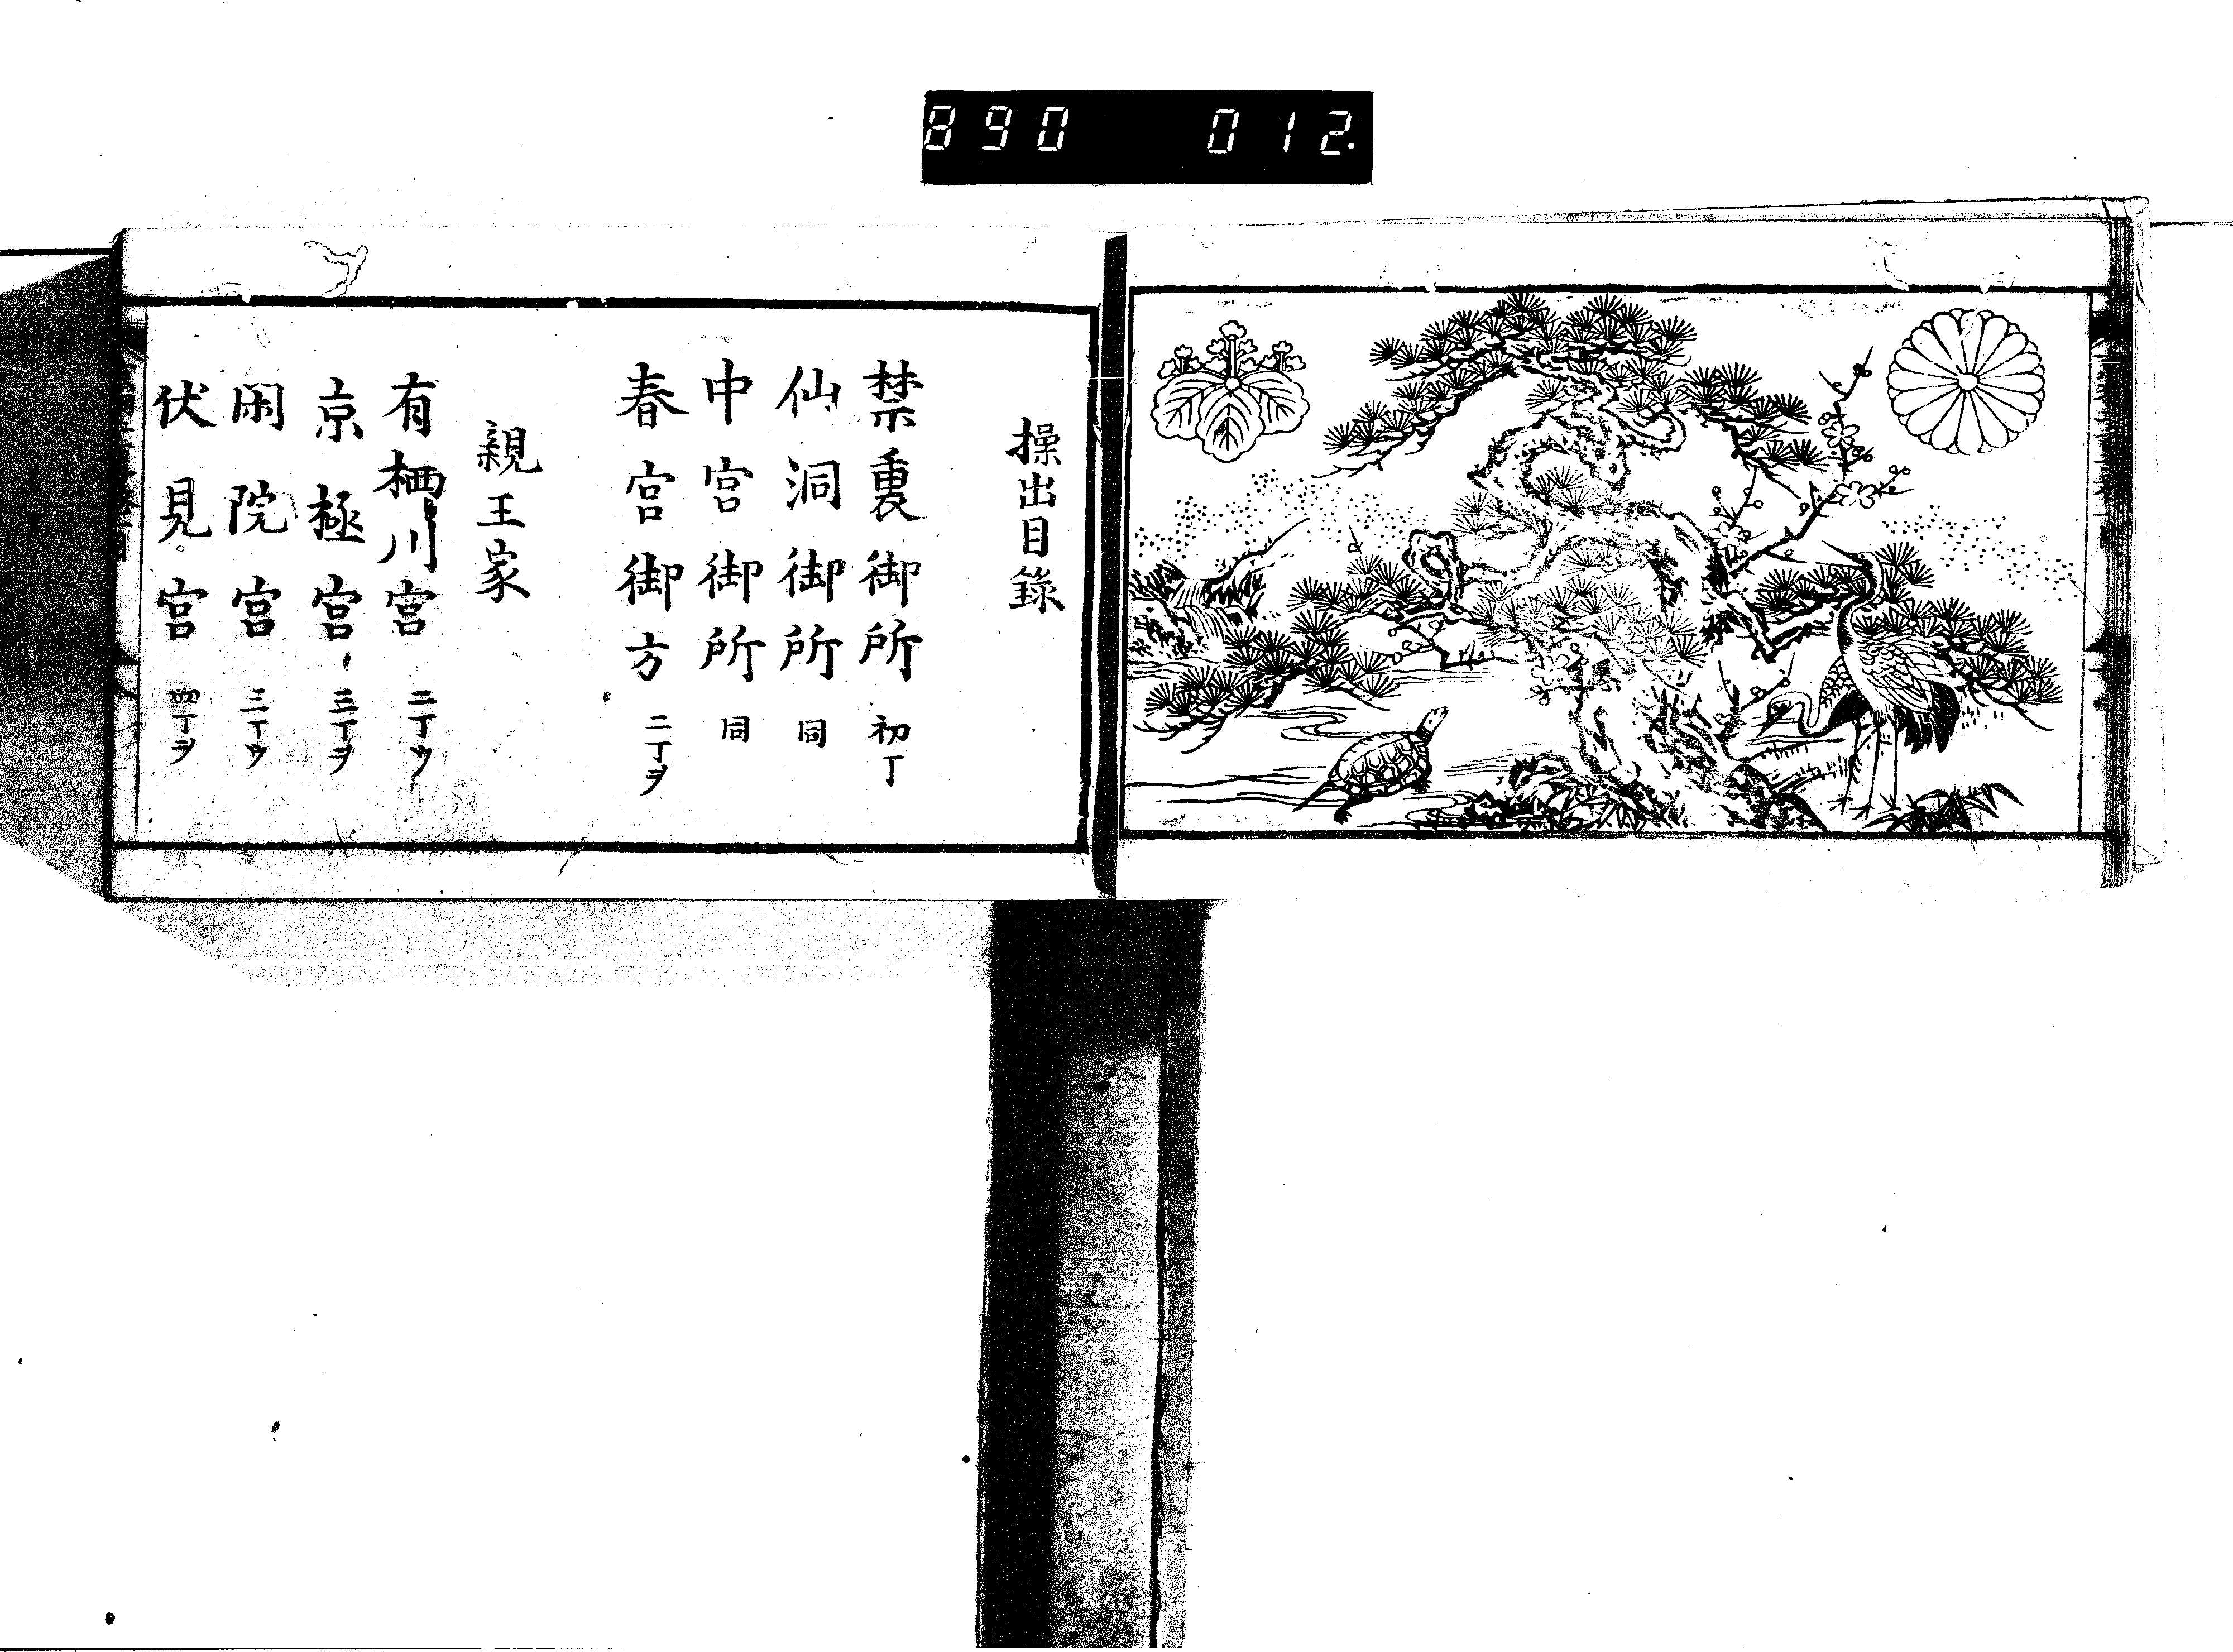 890 012.
操出目錄
禁裏御所 初丁
仙洞御所 同
中宮御所 同
春宮御方 二丁ヲ
親王家
有栖川宮 二丁ウ
京極宮 三丁ヲ
閑院宮 三丁ウ
伏見宮 四丁ヲ